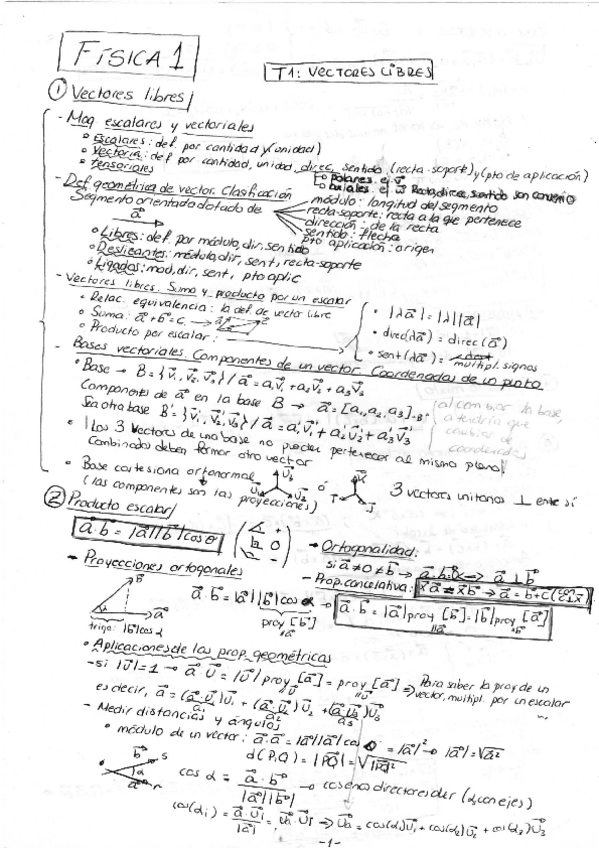 FÍSICA 1
T1: VECTORES LIBRES
① Vectores libres
- Mag escalares y vectoriales
• Escalares: def. por cantidad y (unidad)
• Vectoria: def por cantidad, unidad, direc, sentido, (recta-soporte) y (pto de aplicación)
• Tensoriales
polares ej v⃗
axiales ej ω⃗ Recta, direc, sentido son convenio
- Def geométrica de vector. Clasificación
Segmento orientado dotado de
a⃗
módulo: longitud del segmento
recta-soporte: recta a la que pertenece
dirección: de la recta
sentido: flecha
pto aplicación: origen
• Libres: def. por módulo, dir, sentido
• Deslizantes: módulo, dir, sent, recta-soporte
• Ligados: mod, dir, sent, pto aplic
- Vectores libres. Suma y producto por un escalar
• Relac. equivalencia: la def. de vector libre
• Suma: a⃗ + b⃗ = c⃗
• Producto por escalar:
• |λa⃗| = |λ||a⃗|
• direc(λa⃗) = direc(a⃗)
• sent(λa⃗) = multipl. signos
- Bases vectoriales. Componentes de un vector. Coordenadas de un punto
• Base → B = {v⃗₁, v⃗₂, v⃗₃} / a⃗ = a₁v⃗₁ + a₂v⃗₂ + a₃v⃗₃
Componentes de a⃗ en la base B → a⃗ = [a₁, a₂, a₃]B
Sea otra base B' = {v⃗₁', v⃗₂', v⃗₃'} / a⃗ = a₁'v⃗₁' + a₂'v⃗₂' + a₃'v⃗₃'
al cambiar la base,
a tendría que
cambiar de
coordenadas
• ¡Los 3 vectores de una base no pueden pertenecer al mismo plano!
Combinados deben formar otro vector
• Base cartesiana ortonormal
(las componentes son las proyecciones)
ó
3 vectores unitarios ⊥ entre sí
② Producto escalar
a⃗ · b⃗ = |a⃗||b⃗|cos θ
- Ortogonalidad:
si a⃗ ≠ 0 ≠ b⃗ → a⃗ · b⃗ = 0 ↔ a⃗ ⊥ b⃗
- Prop. cancelativa:
- Proyecciones ortogonales
b⃗
a⃗
trigo: |b⃗|cos α
a⃗ · b⃗ = |a⃗||b⃗|cos α → a⃗ · b⃗ = |a⃗|proy [b⃗] = |b⃗|proy [a⃗]
proy [b⃗]
• Aplicaciones de las prop. geométricas
- si |U⃗| = 1 → a⃗ · U⃗ = |U⃗| proy [a⃗] = proy [a⃗] ⇒ Para saber la proy de un
vector, multipl. por un escalar
es decir, a⃗ = (a⃗·U⃗₁)U⃗₁ + (a⃗·U⃗₂)U⃗₂ + (a⃗·U⃗₃)U⃗₃
a₁ a₂ a₃
- Medir distancias y ángulos
• módulo de un vector: a⃗·a⃗ = |a⃗||a⃗|cos 0 = |a⃗|² → |a⃗| = √a⃗²
d(P,Q) = |PQ⃗| = √PQ⃗²
b⃗ s
α
a⃗ r
cos α = a⃗ · b⃗ / |a⃗||b⃗| → cosenos directores dir (α, con ejes)
cos(αᵢ) = a⃗·U⃗ᵢ / |a⃗| = U⃗a·U⃗ᵢ ⇒ U⃗a = cos(α₁)U⃗₁ + cos(α₂)U⃗₂ + cos(α₃)U⃗₃
-1-